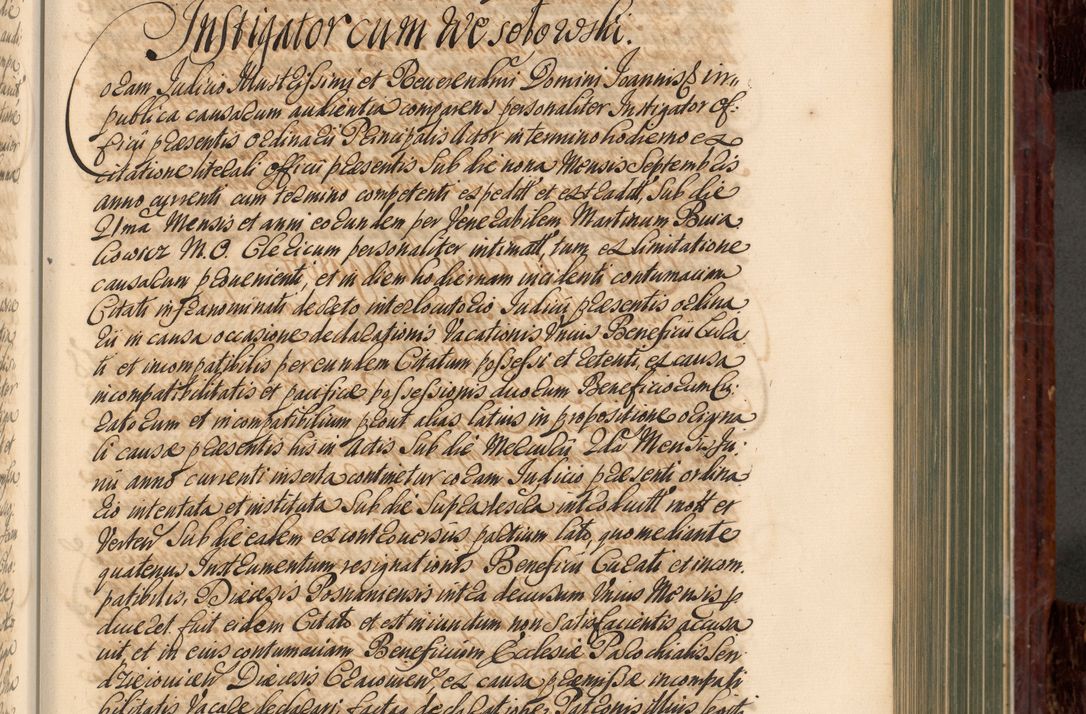 Instigator cum Wesołowski.
Coram Judicio Illustrissimi et Reverendissimi Domini Joannis in
publica causarum audientia comparens personaliter Instigator Of-
ficii praesentis Ordinarii Principalis Actor in termino hodierno ex
citatione literali officii praesentis sub die nona Mensis Septembris
anno currenti cum termino competenti expedit et extradit, sub die
21ma Mensis et anni eorundem per Venerabilem Martinum Bura
kowicz M. O. Clericum personaliter intimatt, tum ex limitatione
causarum provenienti, et in diem hodiernam incidenti contumaciam
Citati infranominati decreto interlocutorio Judicii praesentis ordina
rii in causa occasione declarationis Vacationis Unius Beneficii Cura
ti et incompatibilis per eundem Citatum possessi et retenti, ex causa
incompatibilitatis et pacificae possessionis duorum Beneficiorum Cu-
ratorum et incompatibilium prout alias latius in propositione origina
li causae praesentis his in Actis sub die Mercurii 2da Mensis Ju-
nii anno currenti inserta continetur coram Judicio praesenti ordina
rio intentata et instituta sub die supra descra intro et
Verten sub die eadem ex controversiis partium lato, quo mediante
quatenus Instrumentum resignationis Beneficii Curati et incom-
patibilis, Diaecesis Posnaniensis intra decursum Unius Mensis p
duceret fuit eidem Citato et est iniunctum non satisfacientis accusa
vit, et in eius contumaciam Beneficium Ecclesiae Parochialis Sen
dzieiovien Diaecesis Cracovien, ex causa praemissae incompati
bilitatis Vacare declarari, facta declaratione, Patronis illius